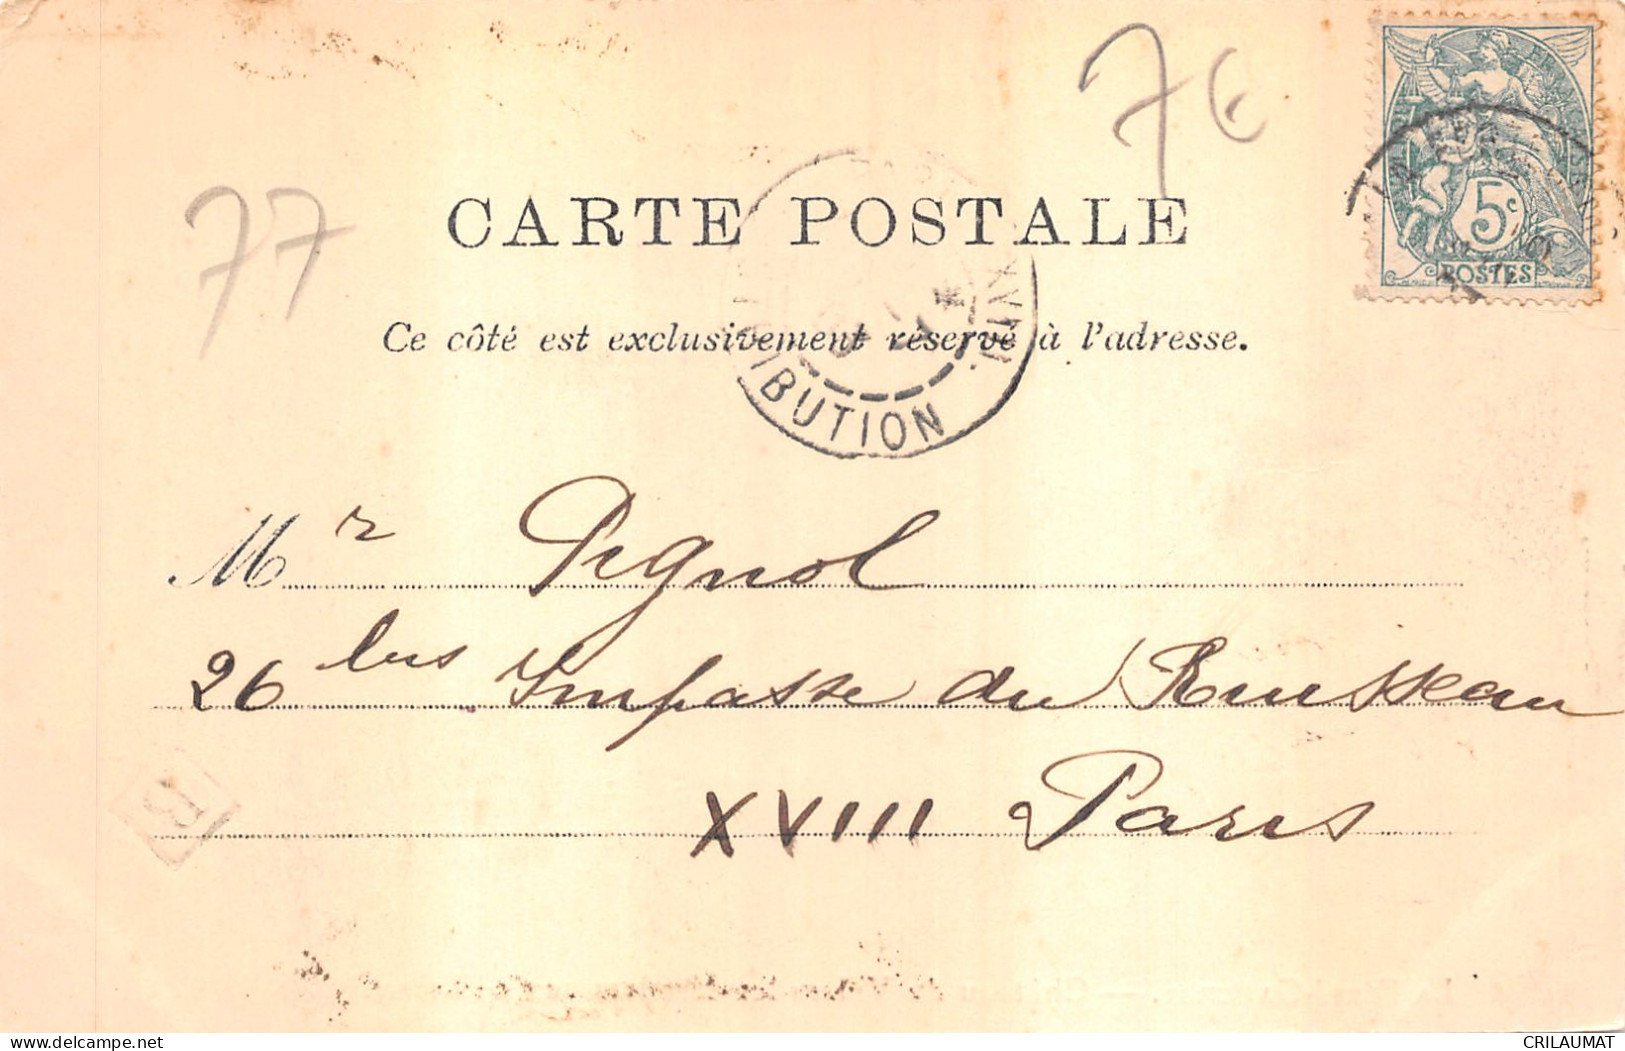 7€
77
5c
POSTES
CARTE POSTALE
Ce côté est exclusivement réservé à l'adresse.
XVIII
IBUTION
Mr Pignol
26 bis Impasse du Ruisseau
XVIII Paris
B
CRILAUMAT